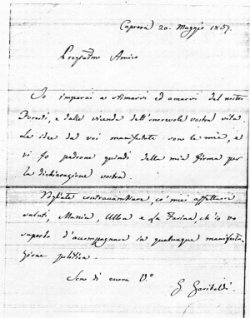 Caprera 20. Maggio 1857.
Pregiatmo Amico
Io imparai a stimarvi ed amarvi dal nostro
e dalle vicende dell'onorevole vostra vita.
Le idee da voi manifestate sono le mie, e
vi fo padrone quindi della mia firma per
la dichiarazione vostra.
Vogliate contraccambiare, co' miei affettuosi
saluti, Manin, Ulloa e La Farina, ch'io vo
superbo d'accompagnare in qualunque manifesta-
zione politica.
Sono di cuore Vo
G Garibaldi